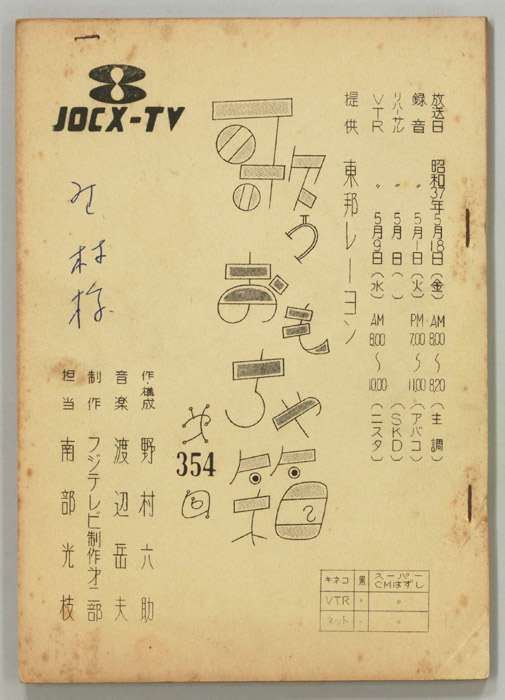 JOCX-TV
放送日 昭和37年5月18日(金) AM 8.00〜8.20 (主調)
録音 〃 5月1日(火) PM 7.00〜11.00 (アバコ)
リハーサル 〃 5月 日( ) (SKD)
VTR 〃 5月9日(水) AM 8.00〜10.00 (ニスタ)
提供 東邦レーヨン
歌うおもちゃ箱
第354回
野村様
作・構成 野村六助
音楽 渡辺岳夫
制作 フジテレビ制作才二部
担当 南部光枝
キネコ 黒 スーパーCMはずし
VTR 〃 〃
ネット 〃 〃